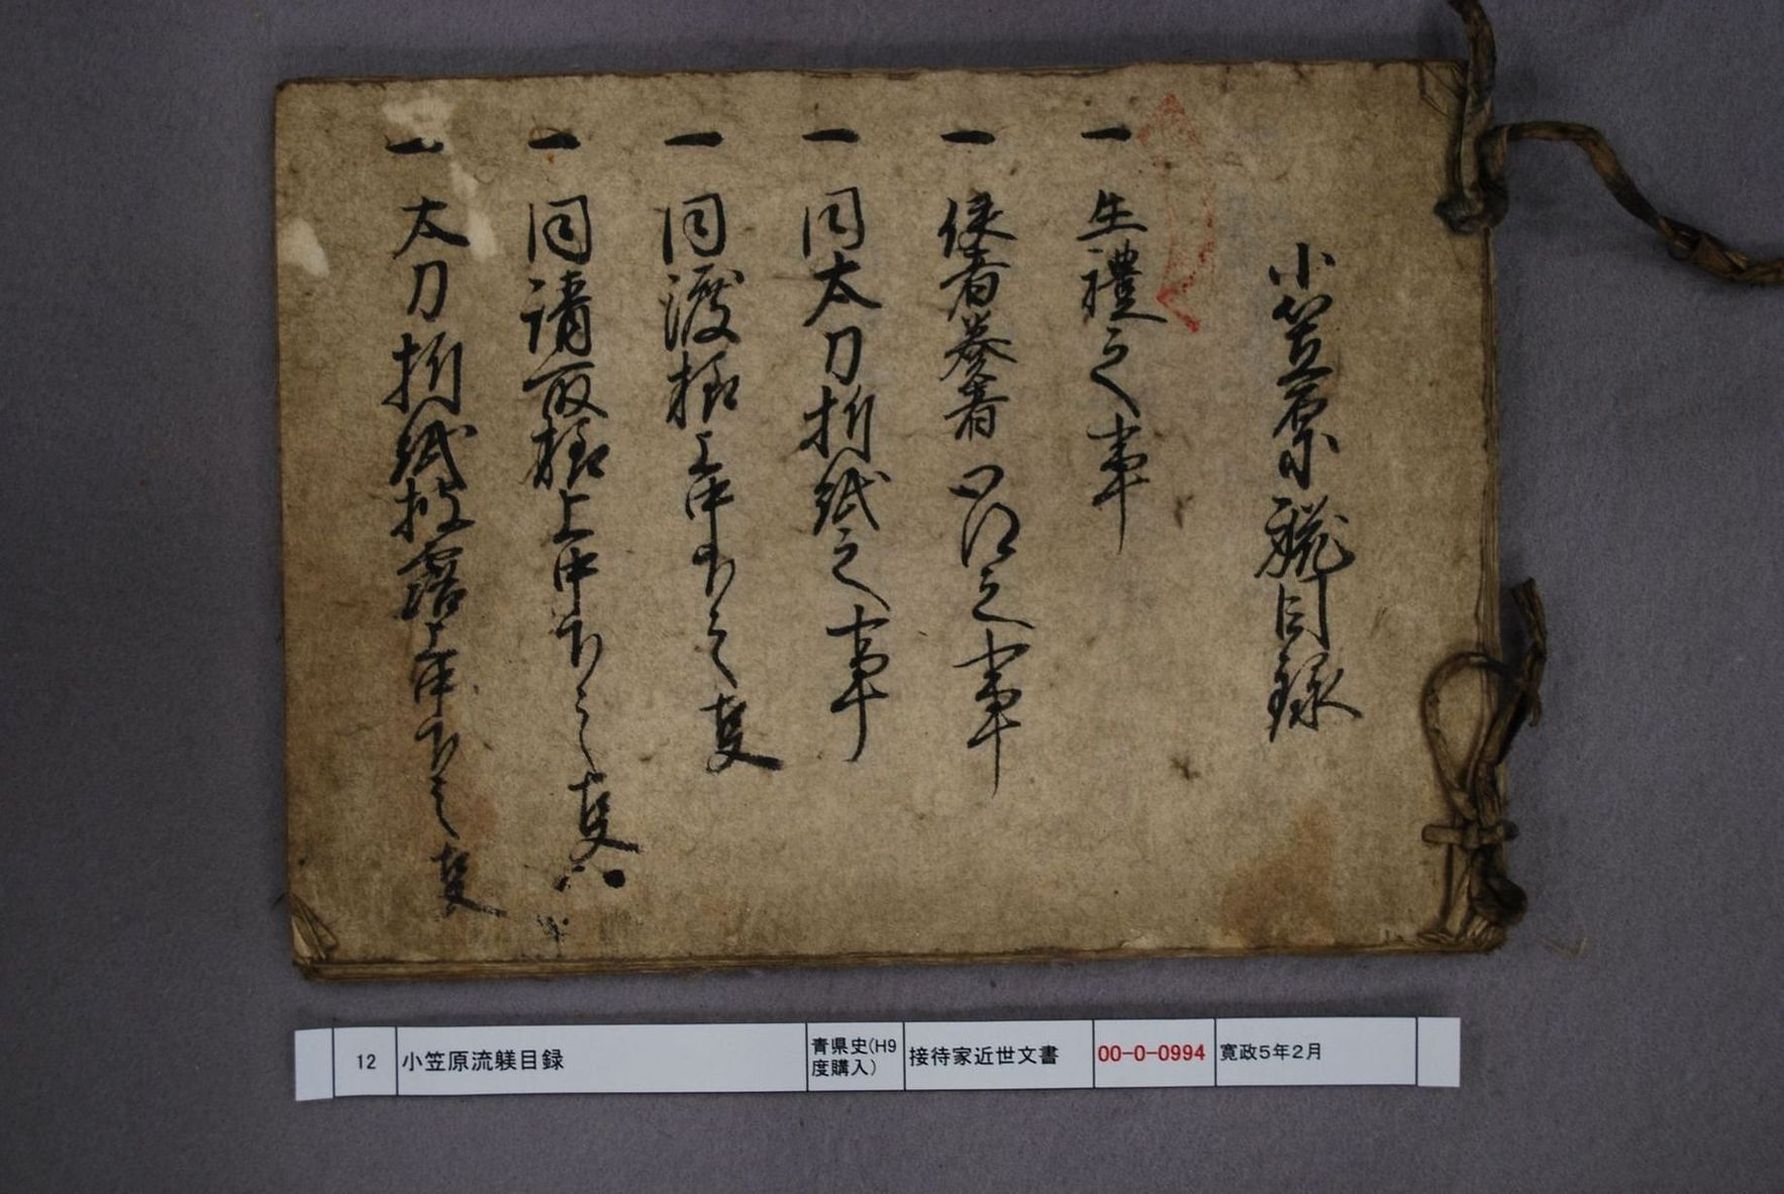 小笠原躾目録
一 生禮之事
一 使者奏者口状之事
一 同太刀折紙之事
一 同渡様上中下之事
一 同請取様上中下之事
一 太刀折紙披露上中下之事
12
小笠原流躾目録
青県史(H9
度購入)
接待家近世文書
00-0-0994
寛政5年2月